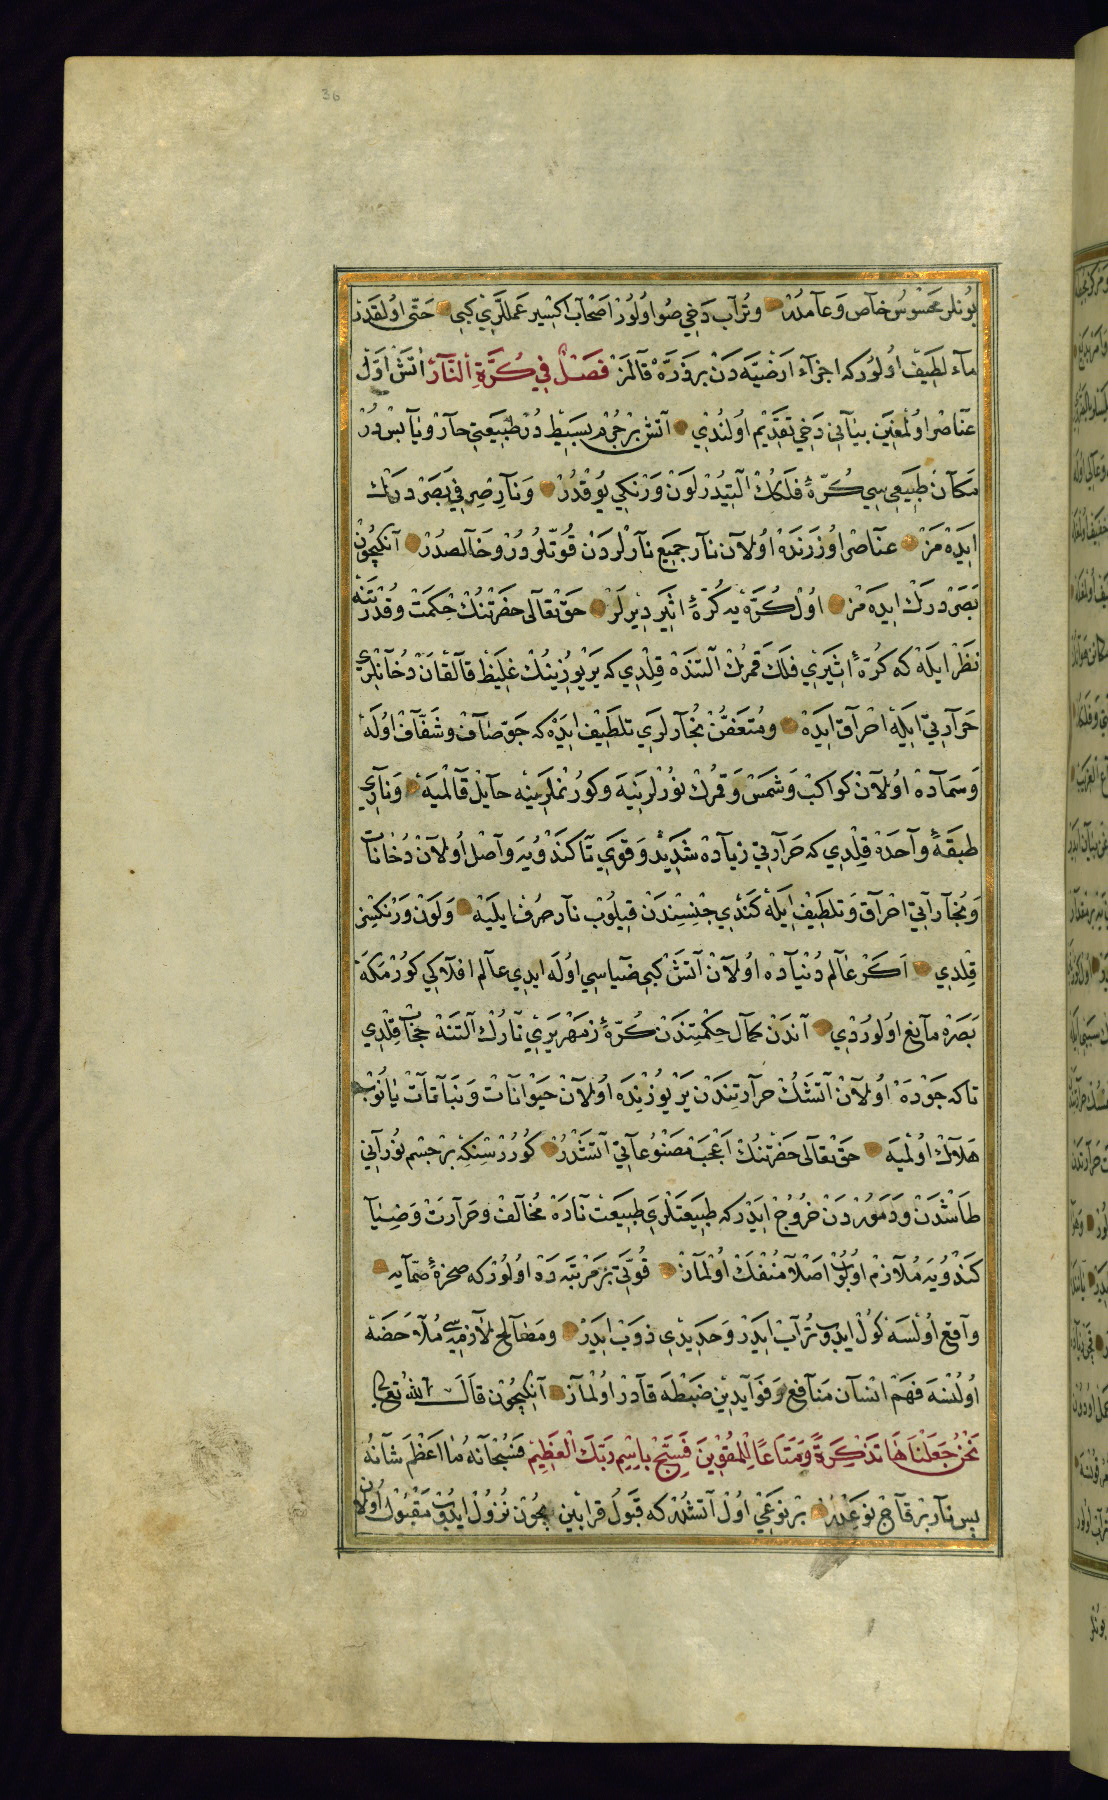 36
بونلر محسوس خاص وعامدر وتراب دخي صو اولور اصحاب اكسير عمللري كبي حتى اولقدر
ماء لطيف اولور كه اجزاء ارضيه دن بر ذره قالمز فصل في كرة النار اتش اول
عناصر اولمغين بياني دخي تقديم اولندي آتش بر جرم بسيط در طبيعتي حار ويابس در
مكان طبيعي سي كره فلك التيدر لون ورنكي يوقدر ونار صرفي بصر درك
ايده مز عناصر اوزرنده اولان نار جميع نارلردن قوتلودر وخالصدر آنكيچون
بصر درك ايده مز اول كره يه كرۀ اثير ديرلر حق تعالى حضرتنك حكمت وقدرتنه
نظر ايله كه كرۀ اثيري فلك قمرك التنده قلدي كه ير يوزينك غليظ قالقان دخانلري
حرارتي ايله احراق ايده ومتعفن بخارلري تلطيف ايده كه جو صاف وشفاف اوله
وسماده اولان كواكب وشمس وقمرك نورلرينه وكورنملرينه حايل قالميه وناري
طبقۀ واحده قلدي كه حرارتي زياده شديد وقوي تا كندويه واصل اولان دخانات
وبخاراتي احراق وتلطيف ايله كندي جنسندن قيلوب نار صرف ايليه ولون ورنكسز
قلدي اكر عالم دنياده اولان آتش كبي ضياسي اوله ايدي عالم افلاكي كورمكه
بصره مانع اولوردي آندن كمال حكمتندن كرۀ زمهريري نارك التنه حجاب قلدي
تا كه جوده اولان آتشك حرارتندن ير يوزنده اولان حيوانات ونباتات يانوب
هلاك اولميه حق تعالى حضرتنك اعجب مصنوعاتي آتشدر كوررسنكه بر جسم نوراني
طاشدن ودموردن خروج ايدر كه طبيعتلري طبيعت ناره مخالف وحرارت وضيا
كندويه ملازم اولوب اصلا منفك اولماز قوتي بر مرتبه ده اولور كه صخرۀ صمايه
واقع اولسه كول ايدوب تراب ايدر وحديدي ذوب ايدر ومصالح لازمه سي ملاحضه
اولنسه فهم انسان منافع وفوايدين ضبطه قادر اولماز آنكيچون قال الله تعالى
نحن جعلناها تذكرة ومتاعا للمقوين فسبح باسم ربك العظيم فسبحانه ما اعظم شانه
پس نار بر قاچ نوعدر بر نوعي اول آتشدر كه قبول قرابين ايچون نزول ايدوب مقبول اولان